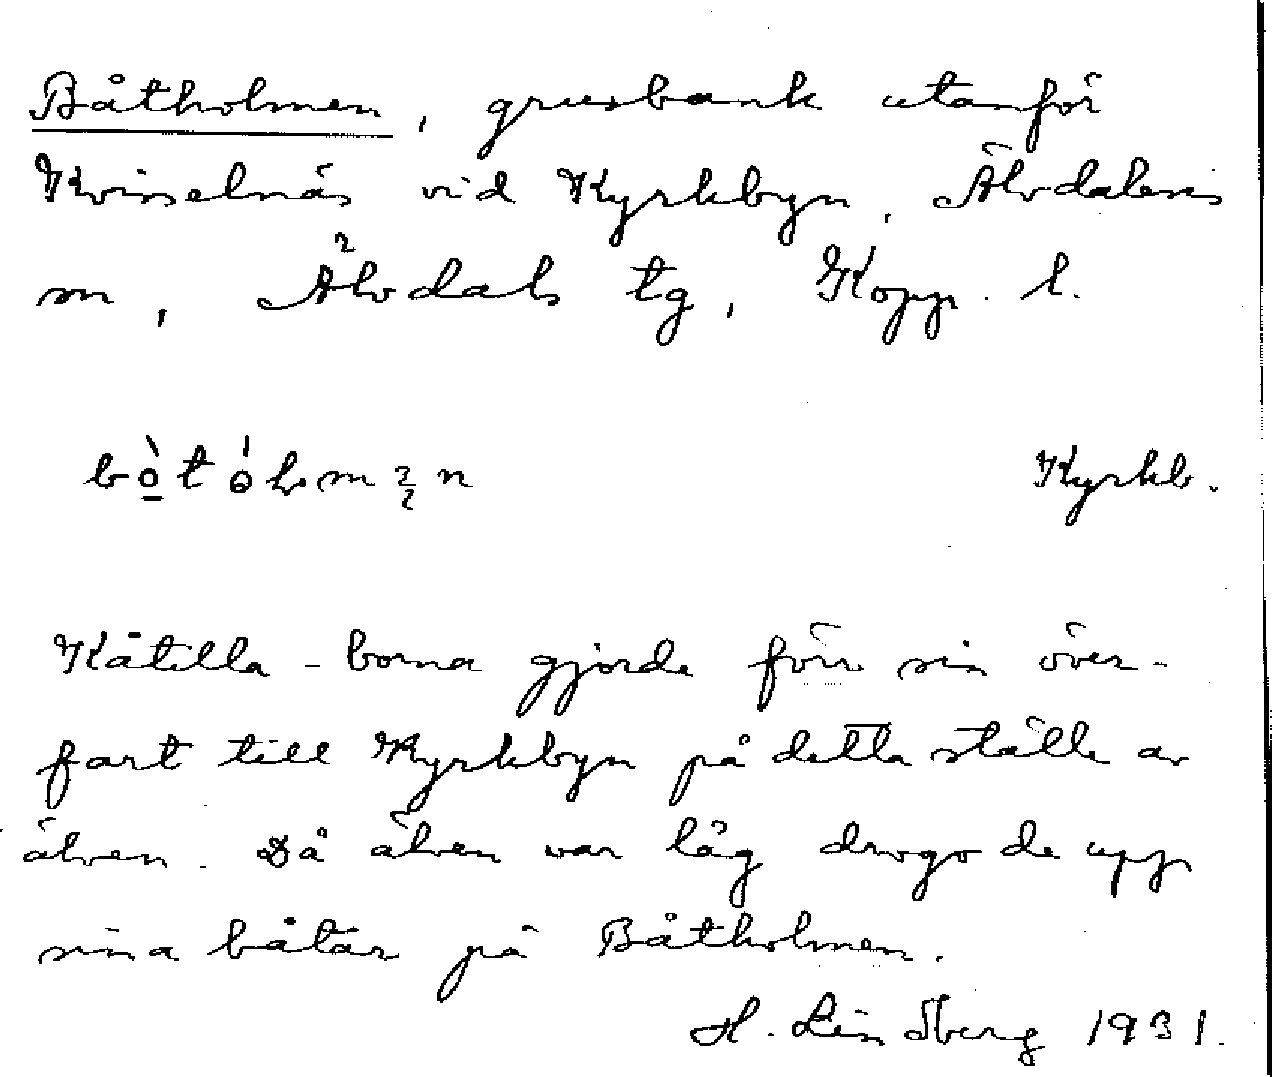 Båtholmen, grusbank utanför
Kvisselnäs vid Kyrkbyn, Älvdalens
sn, Älvdals tg, Kopp. l.
Kyrkb.
Kåtilla-borna gjorde förr sin över-
fart till Kyrkbyn på detta ställe av
älven. Då älven var låg drogo de upp
sina båtar på Båtholmen.
H. Lindberg 1931.